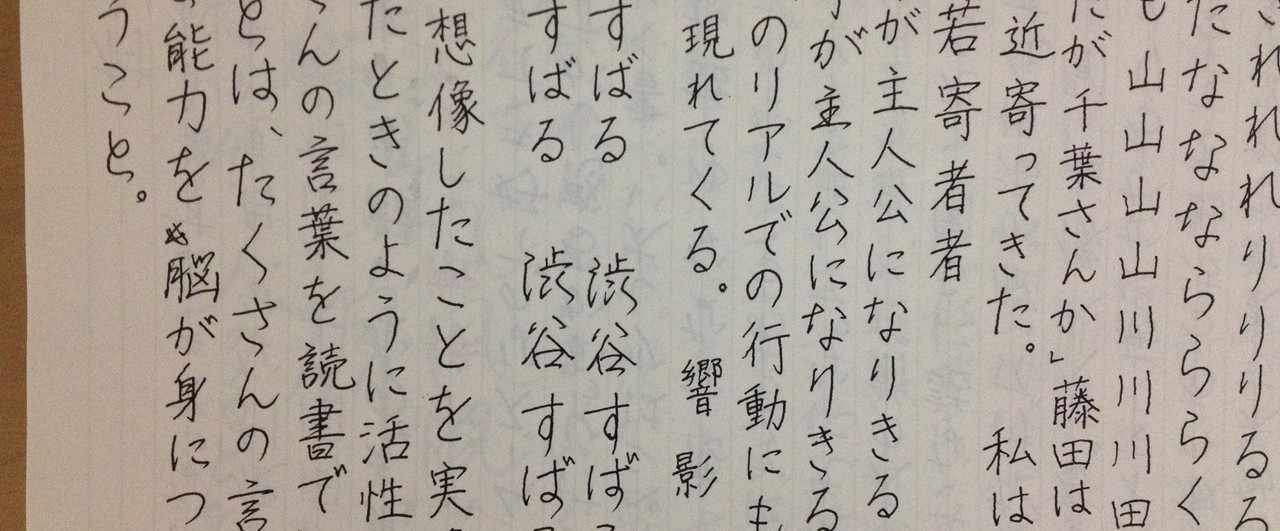 されれれりりりるる
たなななならららく
も山山山山川川川田
だが千葉さんか」藤田は
近寄ってきた。 私は
若寄者者
が主人公になりきる
が主人公になりきる
のリアルでの行動にも
現れてくる。 響影
すばる 渋谷すばる
すばる 渋谷すばる
想像したことを実
たときのように活性
んの言葉を読書で
とは、たくさんの言
能力を脳が身につ
うこと。